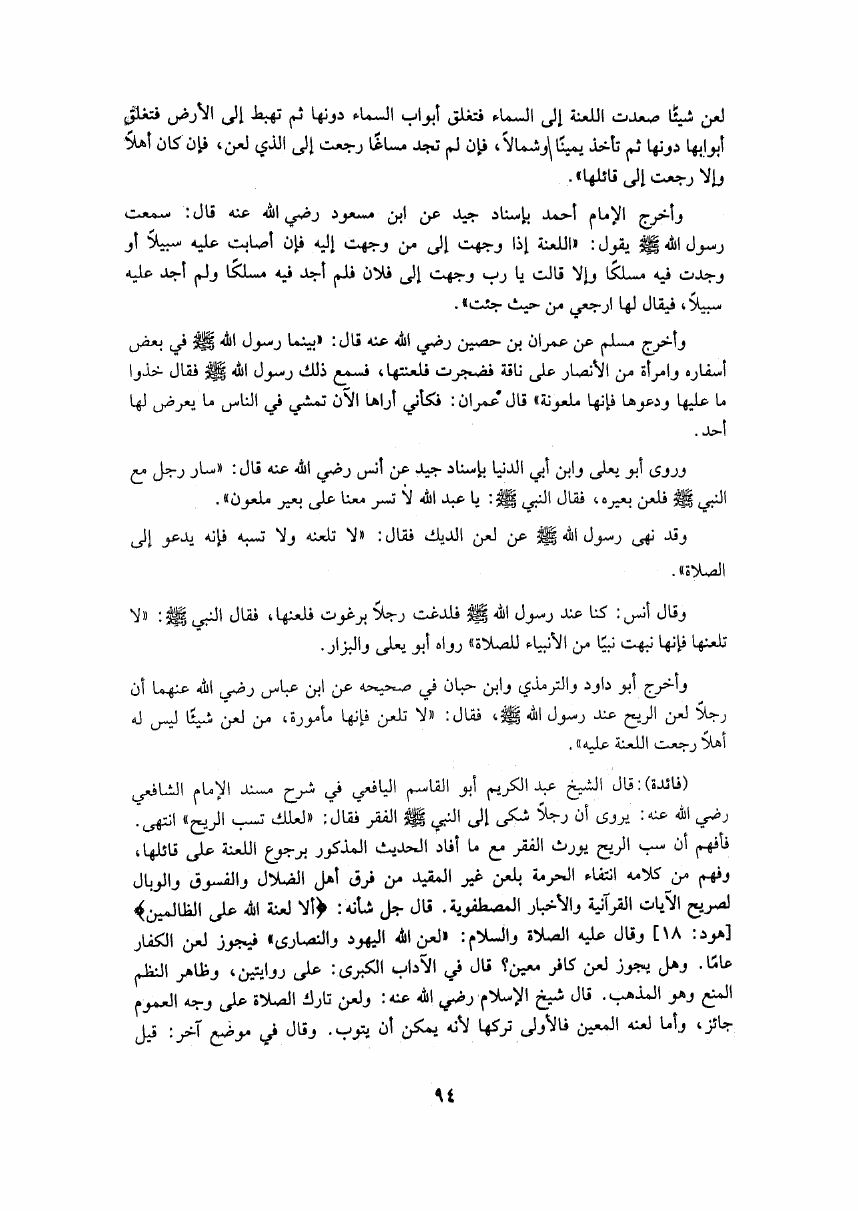 لعن شيئًا صعدت اللعنة إلى السماء فتغلق أبواب السماء دونها ثم تهبط إلى الأرض فتغلق
أبوابها دونها ثم تأخذ يمينًا وشمالاً، فإن لم تجد مساغًا رجعت إلى الذي لعن، فإن كان أهلاً
وإلا رجعت إلى قائلها».
وأخرج الإمام أحمد بإسناد جيد عن ابن مسعود رضي الله عنه قال: سمعت
رسول الله ﷺ يقول: «اللعنة إذا وجهت إلى من وجهت إليه فإن أصابت عليه سبيلاً أو
وجدت فيه مسلكًا وإلا قالت يا رب وجهت إلى فلان فلم أجد فيه مسلكًا ولم أجد عليه
سبيلاً، فيقال لها ارجعي من حيث جئت».
وأخرج مسلم عن عمران بن حصين رضي الله عنه قال: «بينما رسول الله ﷺ في بعض
أسفاره وامرأة من الأنصار على ناقة فضجرت فلعنتها، فسمع ذلك رسول الله ﷺ فقال خذوا
ما عليها ودعوها فإنها ملعونة» قال عمران: فكأني أراها الآن تمشي في الناس ما يعرض لها
أحد.
وروى أبو يعلى وابن أبي الدنيا بإسناد جيد عن أنس رضي الله عنه قال: «سار رجل مع
النبي ﷺ فلعن بعيره، فقال النبي ﷺ: يا عبد الله لا تسر معنا على بعير ملعون».
وقد نهى رسول الله ﷺ عن لعن الديك فقال: «لا تلعنه ولا تسبه فإنه يدعو إلى
الصلاة».
وقال أنس: كنا عند رسول الله ﷺ فلدغت رجلاً برغوت فلعنها، فقال النبي ﷺ: «لا
تلعنها فإنها نبهت نبيًا من الأنبياء للصلاة» رواه أبو يعلى والبزار.
وأخرج أبو داود والترمذي وابن حبان في صحيحه عن ابن عباس رضي الله عنهما أن
رجلاً لعن الريح عند رسول الله ﷺ، فقال: «لا تلعن فإنها مأمورة، من لعن شيئًا ليس له
أهلاً رجعت اللعنة عليه».
(فائدة): قال الشيخ عبد الكريم أبو القاسم اليافعي في شرح مسند الإمام الشافعي
رضي الله عنه: يروى أن رجلاً شكى إلى النبي ﷺ الفقر فقال: «لعلك تسب الريح» انتهى.
فأفهم أن سب الريح يورث الفقر مع ما أفاد الحديث المذكور برجوع اللعنة على قائلها،
وفهم من كلامه انتفاء الحرمة بلعن غير المقيد من فرق أهل الضلال والفسوق والوبال
لصريح الآيات القرآنية والأخبار المصطفوية. قال جل شأنه: ﴿ألا لعنة الله على الظالمين﴾
[هود: ١٨] وقال عليه الصلاة والسلام: «لعن الله اليهود والنصارى» فيجوز لعن الكفار
عامًا. وهل يجوز لعن كافر معين؟ قال في الآداب الكبرى: على روايتين، وظاهر النظم
المنع وهو المذهب. قال شيخ الإسلام رضي الله عنه: ولعن تارك الصلاة على وجه العموم
جائز، وأما لعنه المعين فالأولى تركها لأنه يمكن أن يتوب. وقال في موضع آخر: قيل
٩٤